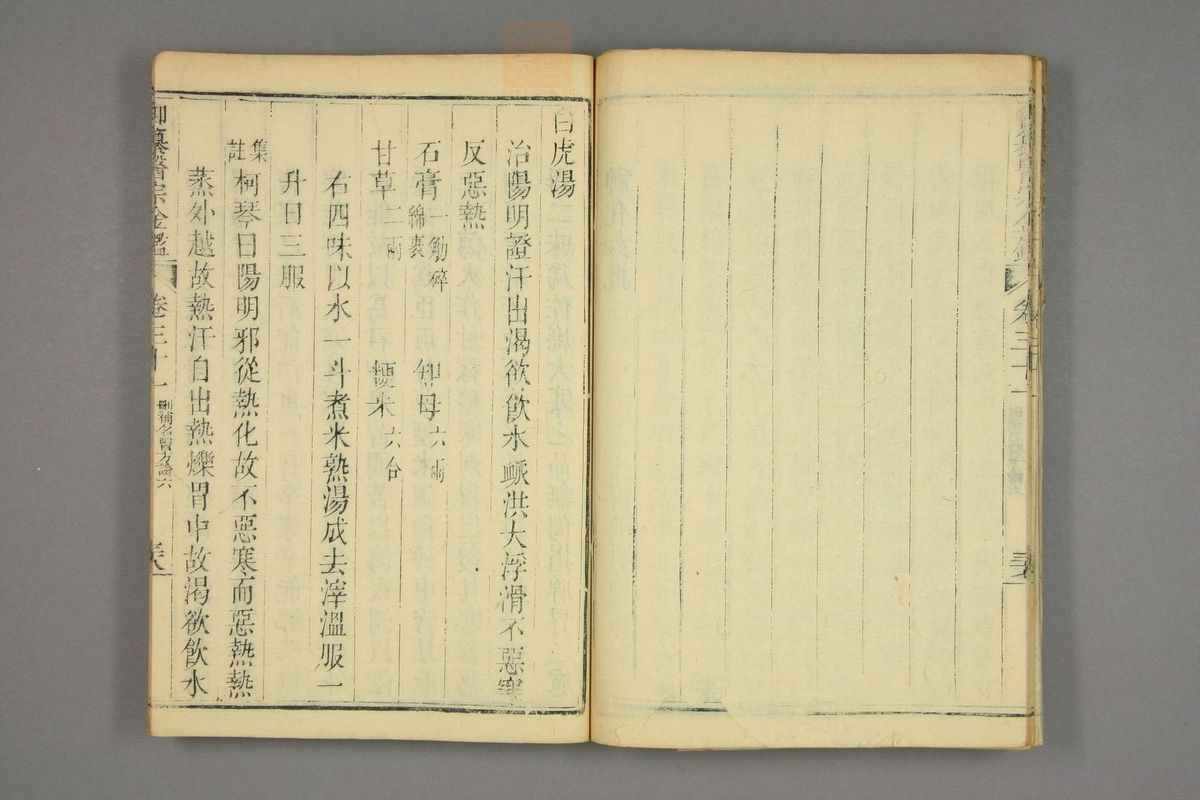 白虎湯
治陽明證汗出渴欲飲水脈洪大浮滑不惡寒
反惡熱
石膏一觔碎綿裹 知母六兩
甘草二兩 粳米六合
右四味以水一斗煮米熟湯成去滓溫服一
升日三服
集註柯琴曰陽明邪從熱化故不惡寒而惡熱熱
蒸外越故熱汗自出熱爍胃中故渴欲飲水
御纂醫宗金鑑 卷三十一 刪補名醫方論六